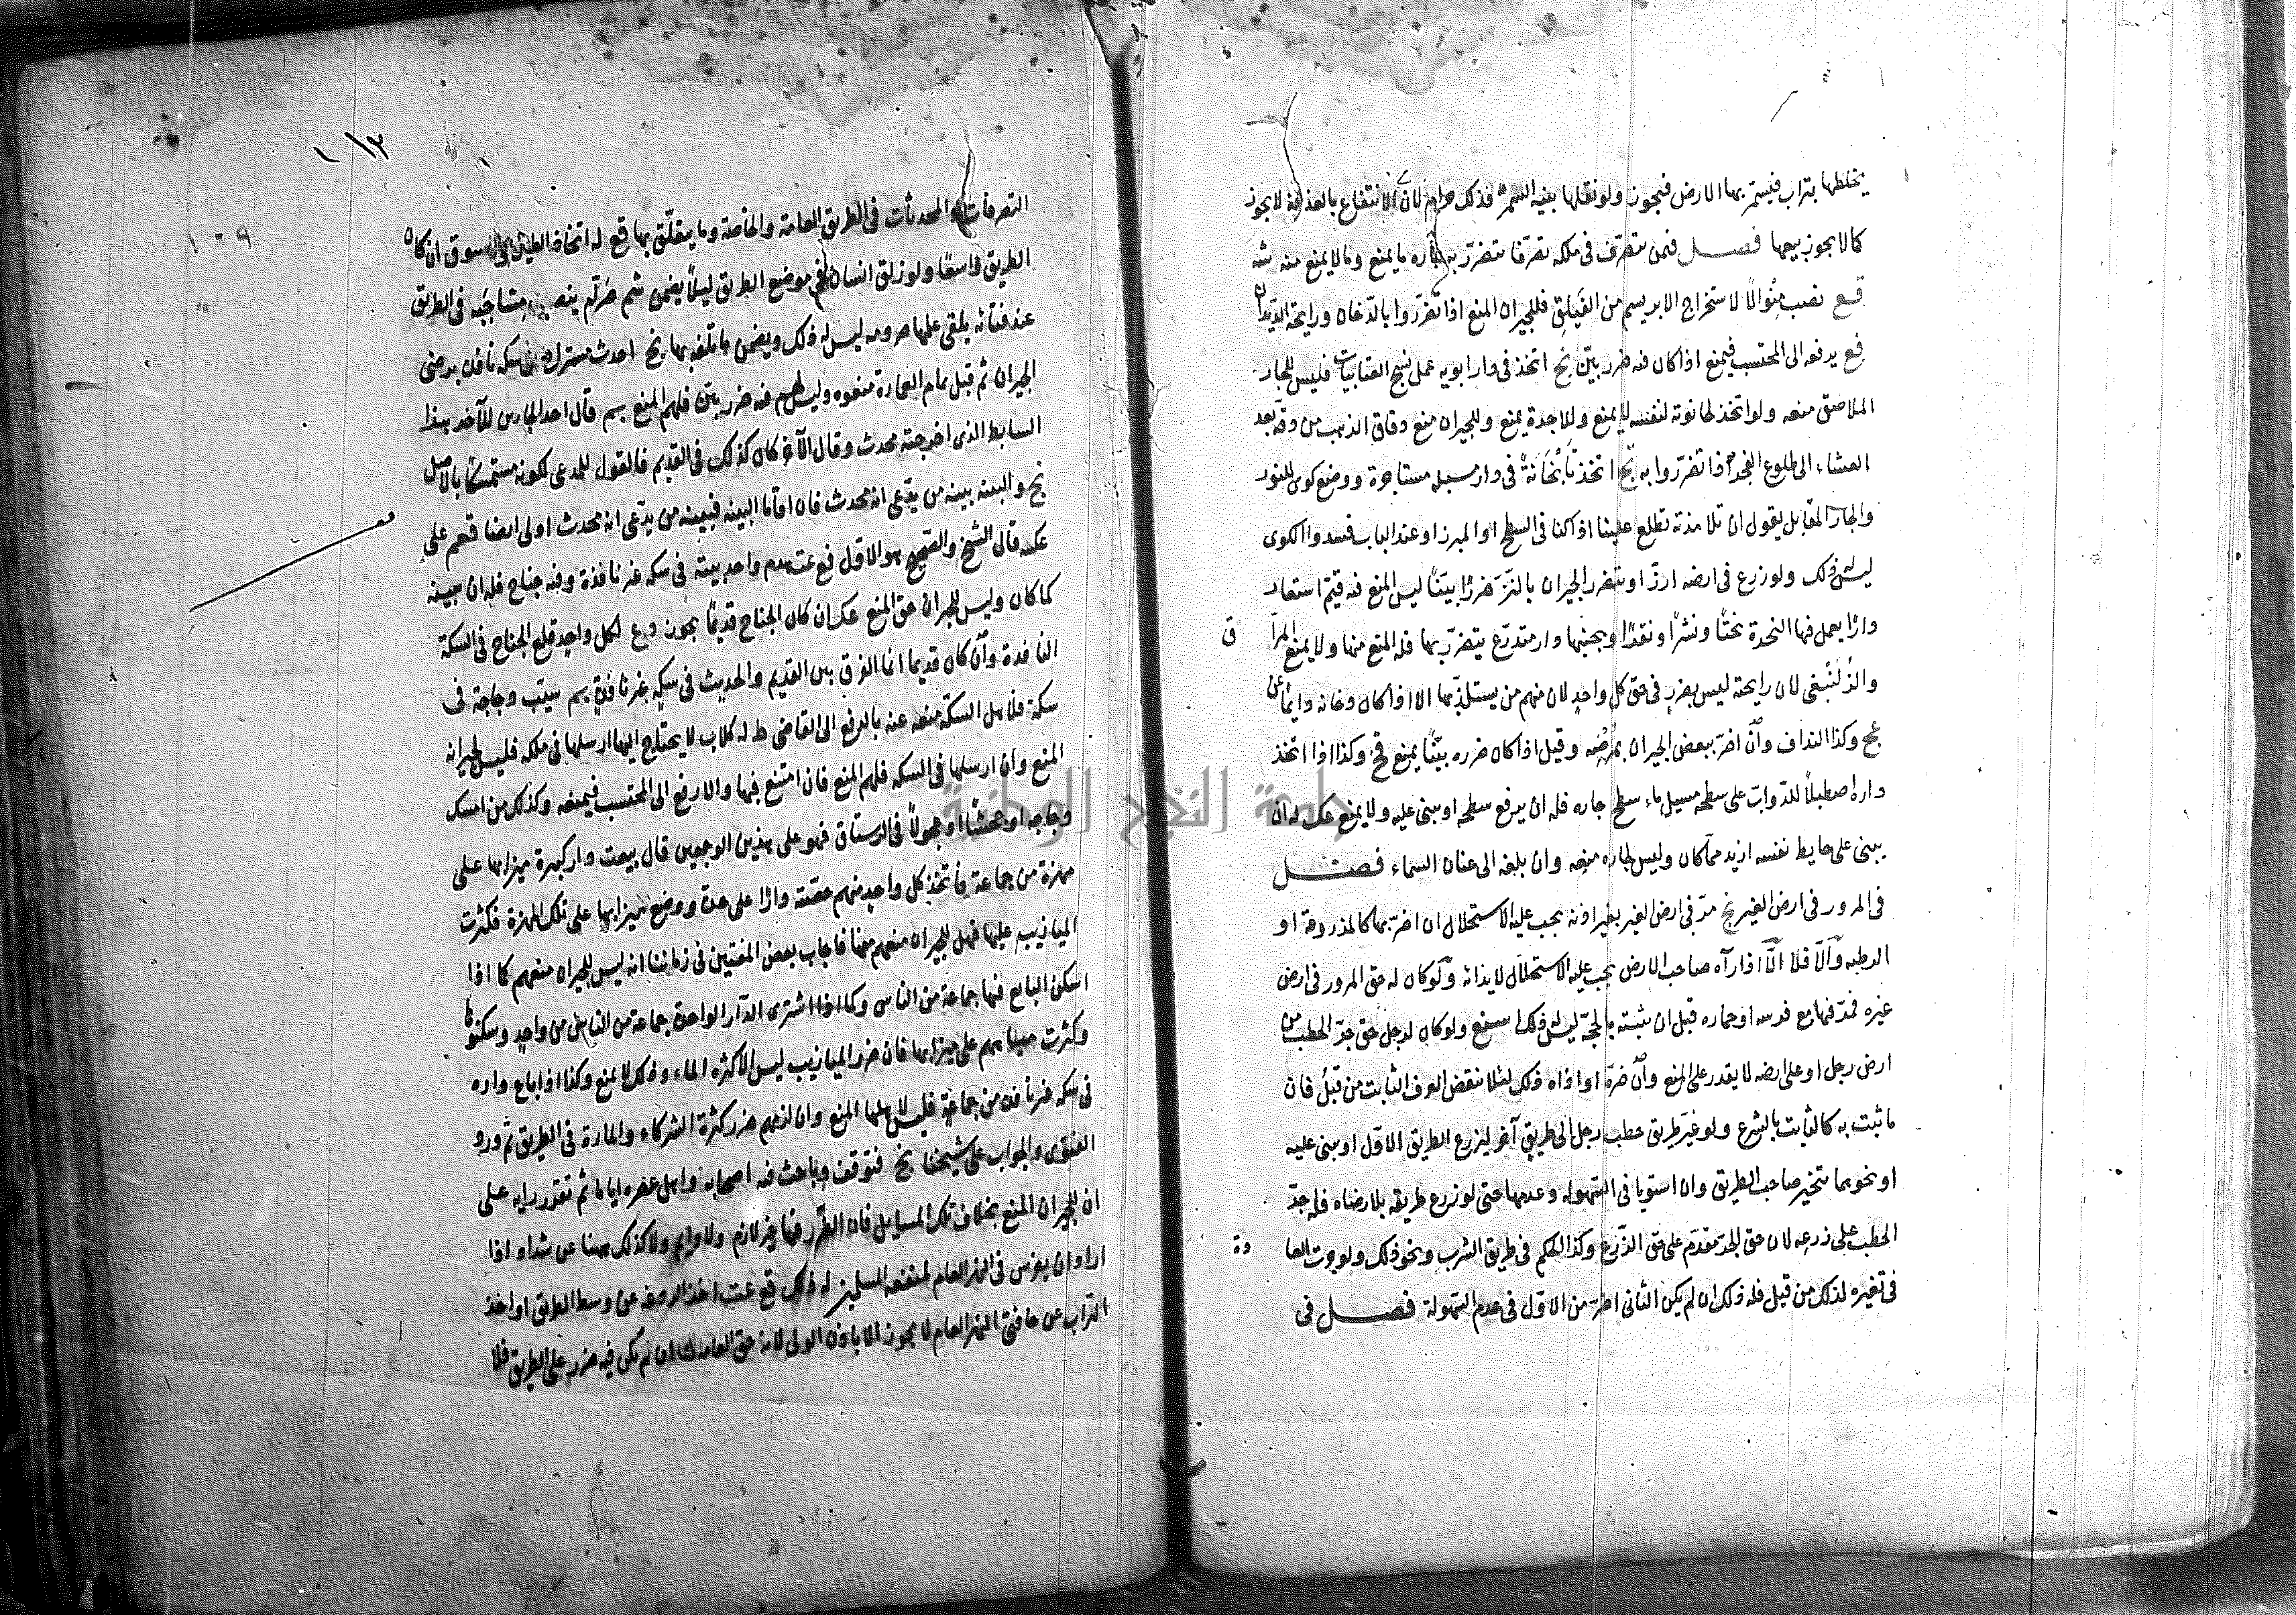 يخلطها بتراب فيستمر بها الارض فيجوز ولو نقلها بنية السمر فذلك حرام لان الانتفاع بالعذرة لا يجوز
كما لا يجوز بيعها فصل فمن يتصرف فى ملكه تصرفا يتضرر به جاره ما يمنع وما لا يمنع منه شه
قع نصب منوالا لاستخراج الابريسم من الفيلق فللجيران المنع اذا تضرروا بالدخان ورايحة الديدان
قع يرفعه الى المحتسب فيمنع اذا كان فه ضرر بين بخ اتخذ فى دار ابويه عمل نسج العتابيات فليس للجار
الملاصق منعه ولو اتخذ طانونة لنفسه لا يمنع وللاجرة يمنع وللجيران منع دقاق الذهب من دقه بعد
العشاء الى طلوع الفجر اذا تضرروا به بخ اتخذ فى دار مسبله مستاجرة ووضع كوى للنور
والجار المقابل يقول ان تلامذته تطلع علينا اذا كنا فى السطح او المبرز او عند الباب فسدوا الكوى
ليس ذلك ولو زرع فى ارضه ارزا ويتضرر الجيران بالنز ضررا بينا ليس المنع فه قيم استعار
دارا يعمل فيها النجدة نحتا ونشرا ونقدا وبجنبها دار يتضرر بها فله المنع منها ولا يمنع
لان رايحة ليس بضرر فى حق كل واحد لان منهم من يستلذ بها الا اذا كان دخانه دايما
عج وكذا النداف وان اضر ببعض الجيران وقيل اذا كان ضرره بينا يمنع فخ وكذا اذا اتخذ
داره اصطبلا للدواب على سطحه مسيل ماء سطح جاره فله ان يرفع سطحه او يبنى عليه ولا يمنع عك له ان
يبنى على حايط نفسه ازيد مما كان وليس لجاره منعه وان بلغه الى عنان السماء فصل
فى المرور فى ارض الغير بخ مر فى ارض الغير بغير اذنه يجب عليه الاستحلال ان اضر بها كالمذروعة او
الرطبه والا فلا الا اذا رآه صاحب الارض يجب عليه الاستحلال لايذائه ولو كان له حق المرور فى ارض
غيره فمر فيها مع فرسه او حماره قبل ان يثبته بالحجة ليس ذلك ولو كان لرجل حق جر الحطب من
ارض رجل او على ارضه لا يقدر على المنع وان ضره او اذاه ذلك لئلا ينقض العرف الثابت من قبل فان
ما ثبت به كالثابت بالشرع ولو غير طريق حطب رجل الى طريق آخر ليزرع الطريق الاول او يبنى عليه
او نحوهما يتخير صاحب الطريق وان استويا فى السهولة وعدمها حتى لو زرع طريقه بلا رضاه فله جر
الحطب على زرعه لان حق الجر مقدم على حق الزرع وكذا الحكم فى طريق الشرب ونحو ذلك ولو جرت العادة
فى تغيره لذلك من قبل فله ذلك ان لم يكن الثانى اضر من الاول فى عدم السهولة فصل فى
التصرفات والمحدثات فى الطريق العامة والخاصة وما يتعلق بها قع له اتخاذ الطين فى السوق ان كان
الطريق واسعا ولو زلق انسان فى موضع الطريق ليلا يضمن شم ينصب فى الطريق
عند فنائه يلقى عليها ليس له ذلك ويضمن ما تلف بها بخ احدث فى سكه نافذه برضى
الجيران ثم قبل تمام العمارة منعوه وليس لهم فه ضرر بين فلهم المنع بم قال احد الجارين للآخر هذا
الساباط الذى اخرجته محدث وقال الآخر كان كذلك فى القديم فالقول للمدعى لكونه متمسكا بالاصل
بخ والبينه بينه من يدعى انه محدث فان اقاما البينه فبينه من يدعى انه محدث اولى ايضا
عكسه قال الشيخ والصحيح هو الاول قع عت هدم واحد بيته فى سكه غير نافذة وفيه جناح فله ان يبنيه
كما كان وليس للجيران حق المنع عك ان كان الجناح قديما يجوز لكل واحد قلع الجناح فى السكة
النافذة وان كان قديما انما الفرق بين القديم والحديث فى سكه غير نافذة بم سيب دجاجة فى
سكة فلاهل السكة منعه عنه بالرفع الى القاضى ط له كلاب لا يحتاج اليها ارسلها فى ملكه فليس لجيرانه
المنع وان ارسلها فى السكه فلهم المنع فان امتنع فبها والا رفع الى المحتسب فيمنعه وكذلك من امسك
دجاجه او جحشا او عجولا فى الرستاق فهو على هذين الوجهين قال بيعت دار كبيرة ميزابها على
من جماعة فاتخذ كل واحد منهم حصته دارا على حدة ووضع ميزابها على تلك فكثرت
الميازيب عليها فهل للجيران منعهم منها فاجاب بعض المفتين فى زماننا انه ليس للجيران منعهم كما اذا
اسكن البايع فيها جماعة من الناس وكما اذا اشترى الدار الواحدة جماعة من الناس من واحد وسكنوها
وكثرت مياههم على ميزابها فان ضرر الميازيب ليس الا كثرة الماء وذلك لا يمنع وكذا اذا باع داره
فى سكه غير نافذه من جماعة فليس لاهلها المنع وان لزمهم ضرر كثرة الشركاء والمارة فى الطريق ثم ورد
الفتوى والجواب على شيخنا بخ فتوقف وباحث فه اصحابه واهل عصره اياما ثم تقرر رايه على
ان للجيران المنع بخلاف تلك المسايل فان الضرر فيها غير لازم ولا دايم ولا كذلك ههنا عن شداد اذا
اراد ان يغرس فى النهر العام لمنفعه المسلمين له ذلك قع عت اخذ الروغه عن وسط الطريق او اخذ
التراب عن حافتى النهر العام لا يجوز الا باذن الوالى لانه حق العامه ان لم يكن فيه ضرر على الطريق فلا
جامعة النجاح الوطنية